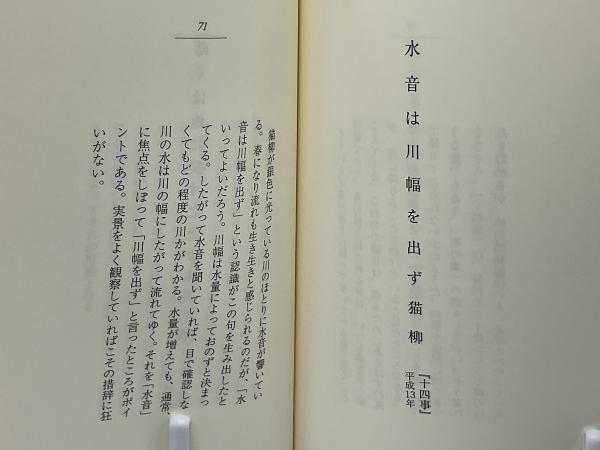 水音は川幅を出ず猫柳
『十四事』
平成13年
71
猫柳が銀色に光っている川のほとりに水音が響いてい
る。春になり流れも生き生きと感じられるのだが、「水
音は川幅を出ず」という認識がこの句を生み出したと
いってよいだろう。川幅は水量によっておのずと決まっ
てくる。したがって水音を聞いていれば、目で確認しな
くてもどの程度の川かがわかる。水量が増えても、通常、
川の水は川の幅にしたがって流れてゆく。それを「水音」
に焦点をしぼって「川幅を出ず」と言ったところがポイ
ントである。実景をよく観察していればこその措辞に狂
いがない。